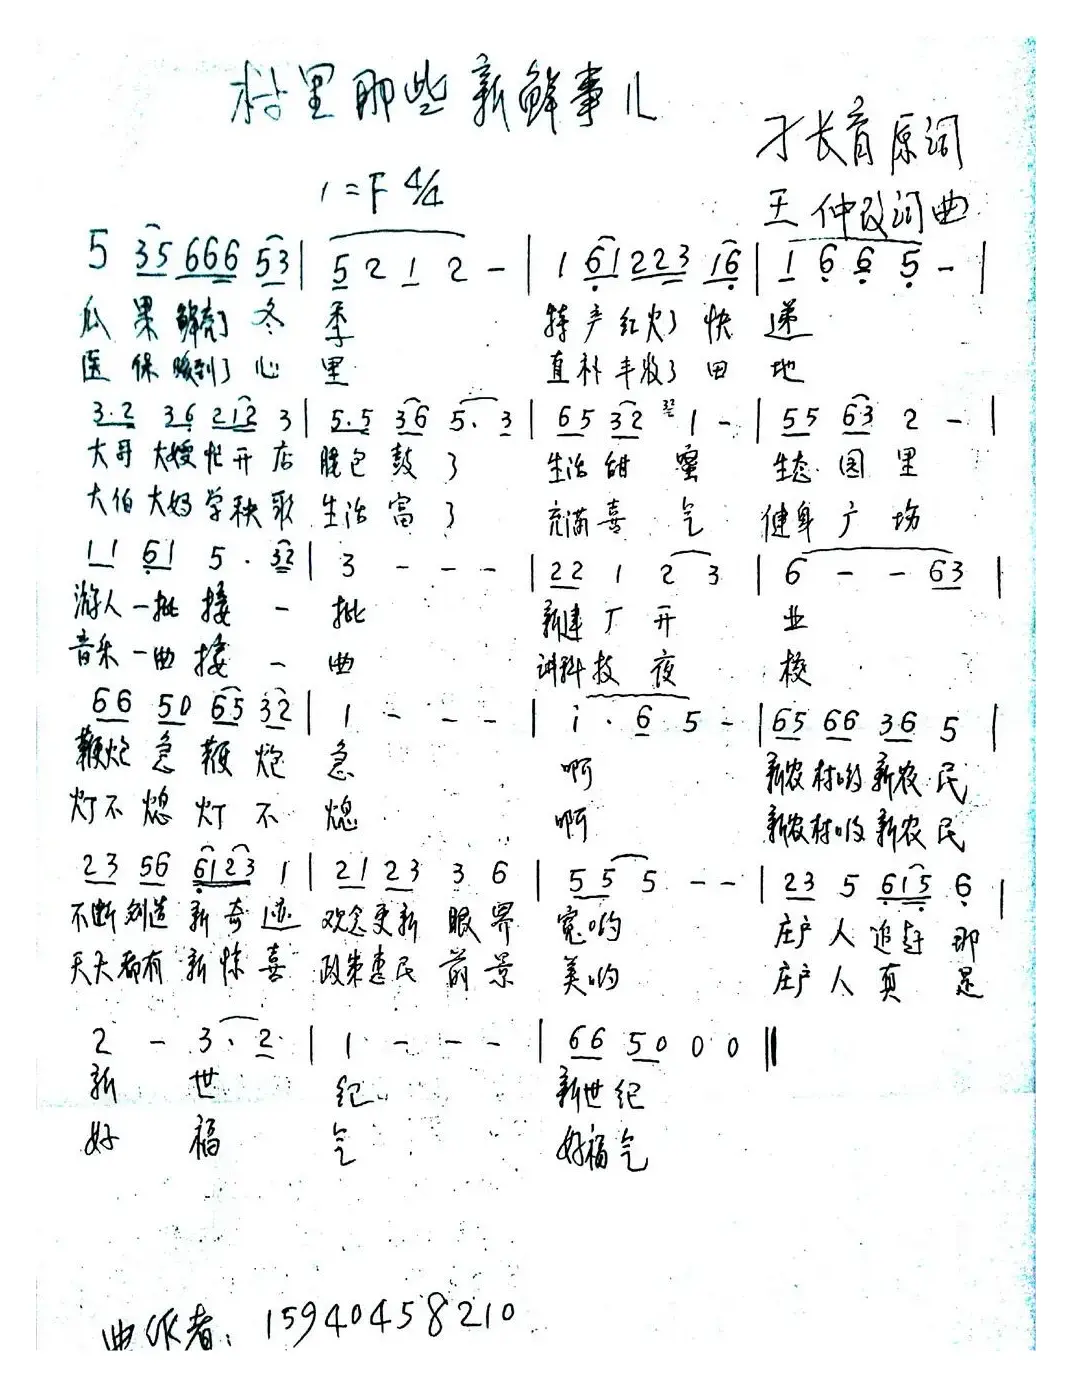 村里那些新鲜事儿
才长育原词
1=F 4/4
王仲改词曲
5 35 666 53 | 5 2 1 2 - | 1 61 223 16 | 1 6 6 5 - |
瓜果鲜亮了冬季 特产红火了快递
医保暖到了心里 直补丰收了田地
3.2 36 212 3 | 5.5 36 5. 3 | 65 32 1 - | 55 63 2 - |
大哥大嫂忙开店 腰包鼓了 生活甜蜜 生态园里
大伯大妈学秧歌 生活富了 充满喜气 健身广场
11 61 5 . 32 | 3 - - - | 22 1 2 3 | 6 - - 63 |
游人一批接一批 新建厂开业
音乐一曲接一曲 讲科技夜校
66 50 65 32 | 1 - - - | i . 6 5 - | 65 66 36 5 |
鞭炮急鞭炮急 啊 新农村哟新农民
灯不熄灯不熄 啊 新农村哟新农民
23 56 6123 1 | 21 23 3 6 | 5 5 5 - - | 23 5 615 6 |
不断创造新奇迹 观念更新眼界宽哟 庄户人追赶那
天天都有新惊喜 政策惠民前景美哟 庄户人真是
2 - 3 . 2 | 1 - - - | 66 50 0 0 ‖
新世纪 新世纪
好福气 好福气
曲作者：15940458210